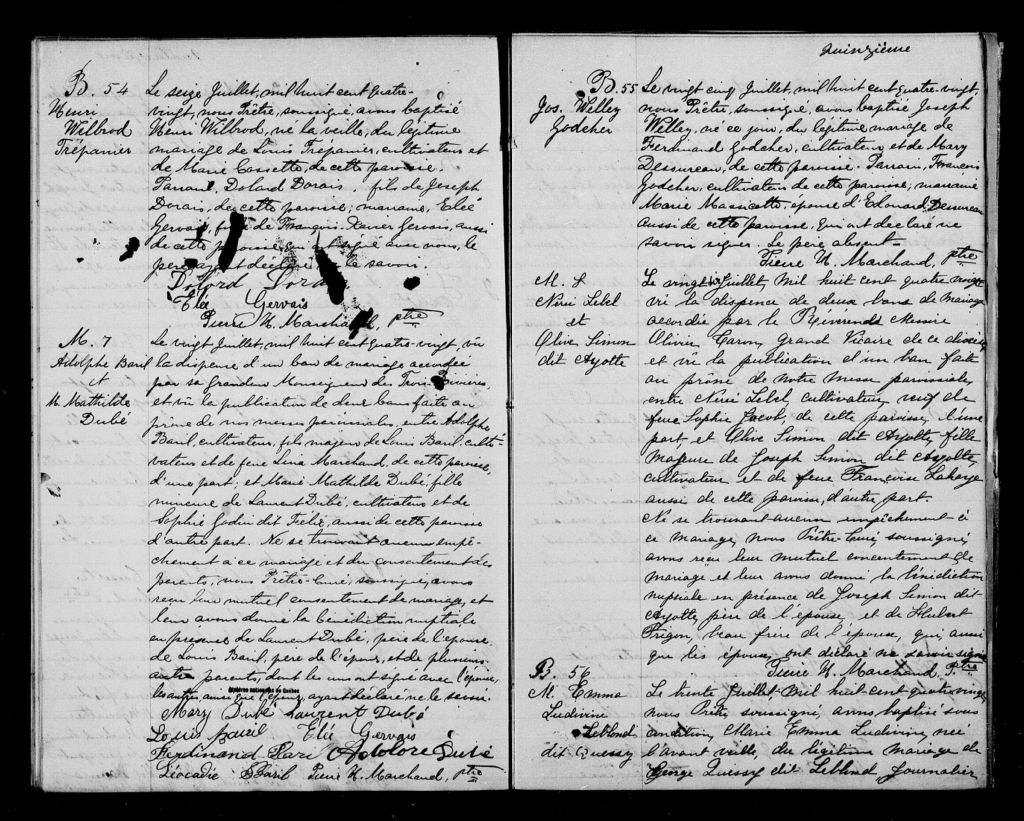 B. 54
Henri
Wilbrod
Trépanier
Le seize Juillet, mil huit cent quatre-
vingt, nous Prêtre, soussigné, avons baptisé
Henri Wilbrod, né la veille, du légitime
mariage de Louis Trépanier, cultivateur et
de Marie Cossette, de cette paroisse.
Parrain, Dolard Dorais, fils de Joseph
Dorais, de cette paroisse; marraine, Elée
Gervais, fille de François Xavier Gervais, aussi
de cette paroisse, qui ont signé avec nous, le
père ayant déclaré ne le savoir.
Dolord Dorais
Elée Gervais
Pierre H. Marchand, ptre
M. 7
Adolphe Baril
et
M. Mathilde
Dubé
Le vingt Juillet, mil huit cent quatre-vingt, vû
la dispense d'un ban de mariage accordée
par sa Grandeur Monseigneur des Trois Rivières,
et vû la publication de deux bans faite au
prône de nos messes paroissiales entre Adolphe
Baril, cultivateur, fils majeur de Louis Baril, culti-
vateur et de feue Lina Marchand, de cette paroisse,
d'une part, et Marie Mathilde Dubé, fille
mineure de Laurent Dubé, cultivateur et de
Sophie Godin dit Félix, aussi de cette paroisse
d'autre part. Ne se trouvant aucun empê-
chement à ce mariage et du consentement des
parents, nous Prêtre-Curé, soussigné, avons
reçu leur mutuel consentement de mariage, et
leur avons donné la bénédiction nuptiale
en présence de Laurent Dubé, père de l'épouse,
de Louis Baril, père de l'époux, et de plusieurs
autres parents, dont les uns ont signé avec l'épouse,
les autres, ainsi que l'époux, ayant déclaré ne le savoir.
Archives nationales du Québec
Mary Dubé Laurent Dubé
Louis Baril Elée Gervais
Ferdinand Adolore Dubé
Léocadie Baril Pierre H. Marchand, ptre
Quinzième
B. 55
Jos. Welley
Godcher
Le vingt cinq Juillet, mil huit cent quatre-vingt,
nous Prêtre, soussigné, avons baptisé Joseph
Welley, né ce jour, du légitime mariage de
Ferdinand Godcher, cultivateur, et de Mary
Dessureau, de cette paroisse. Parrain, François
Godcher, cultivateur de cette paroisse, marraine
Marie Massicotte, épouse d'Edouard Dessureau
aussi de cette paroisse. Qui ont déclaré ne
savoir signer. Le père absent.
Pierre H. Marchand, ptre
M. 8
Néré Lebel
et
Olive Simon
dit Ayotte
Le vingt Juillet, Mil huit cent quatre vingt
vû la dispense de deux bans de mariage
accordée par le Révérends Messire
Olivier Caron, Grand Vicaire de ce diocèse,
et vû la publication d'un ban faite
au prône de notre messe paroissiale,
entre Néré Lebel, cultivateur, veuf de
feue Sophie Jacob, de cette paroisse, d'une
part, et Olive Simon dit Ayotte, fille
majeure de Joseph Simon dit Ayotte,
cultivateur et de feue Françoise
aussi de cette paroisse, d'autre part.
Ne se trouvant aucun empêchement à
ce mariage, nous Prêtre-Curé, soussigné,
avons reçu leur mutuel consentement de
mariage et leur avons donné la bénédiction
nuptiale en présence de Joseph Simon dit
Ayotte, père de l'épouse, et de Hubert
Trigon, beau frère de l'épouse, qui, aussi
que les époux, ont déclaré ne savoir signer
Pierre H. Marchand, Ptre
B. 56
M. Emma
Ludivine
Leblond
dit Quessy
Le trente Juillet Mil huit cent quatre vingt
nous Prêtre, soussigné, avons baptisé sous
condition, Marie Emma Ludivine, née
l'avant veille, du légitime mariage de
George Quessy dit Leblond, Journalier